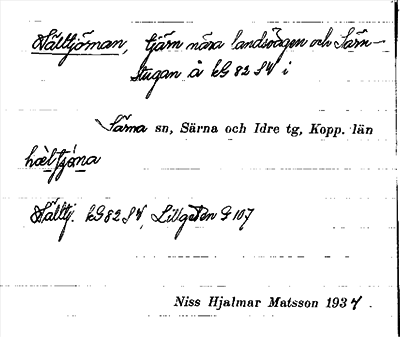 Hälltjörnan, tjärn nära landsvägen och Särn-
stugan å kG 82 SV i
Särna sn, Särna och Idre tg, Kopp. län
hæltjǫ̀na
Hälltj. kG 82 SV, Lillgården G 107
Niss Hjalmar Matsson 1934.